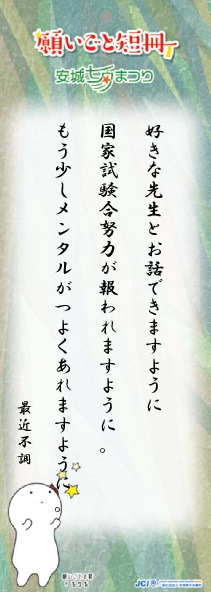 願いごと短冊
安城七夕まつり
好きな先生とお話できますように
国家試験合努力が報われますように。
もう少しメンタルがつよくあれますように
最近不調
JCI